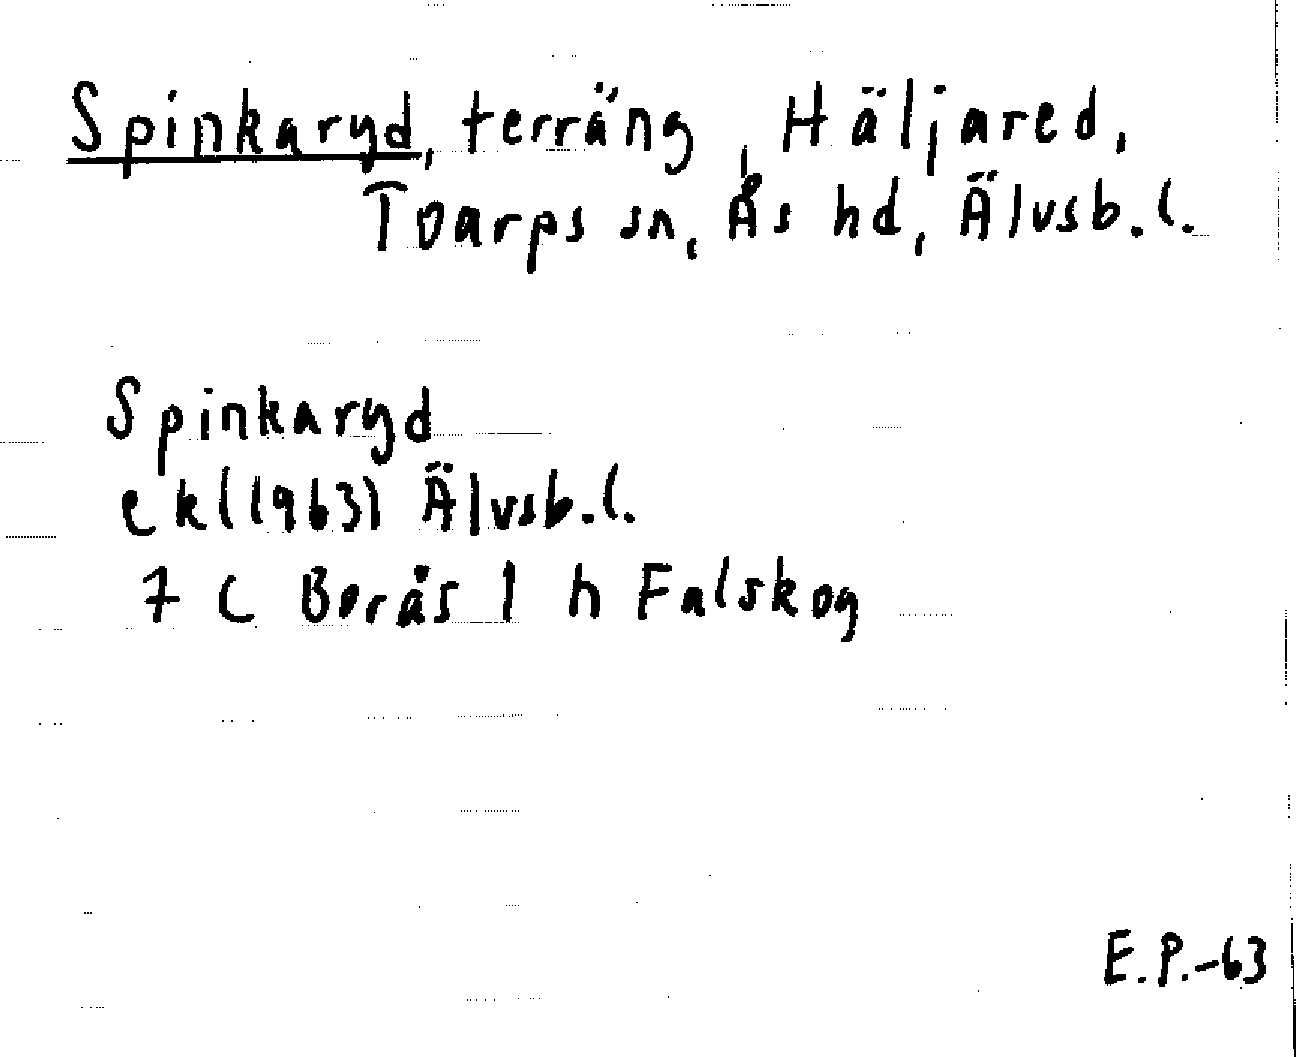 Spinkaryd, terräng, Häljared,
Toarps sn, Ås hd, Älvsb. l.
Spinkaryd
ek(1963) Älvsb. l.
7 C Borås 1 h Falskog
E.P.-63